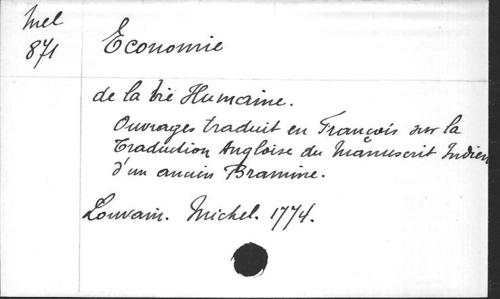 Mel
871
Economie
de la vie Humaine.
Ouvrages traduit en François sur la
Traduction Angloise du Manuscrit Indien
d'un ancien Bramine.
Louvain. Michel. 1774.